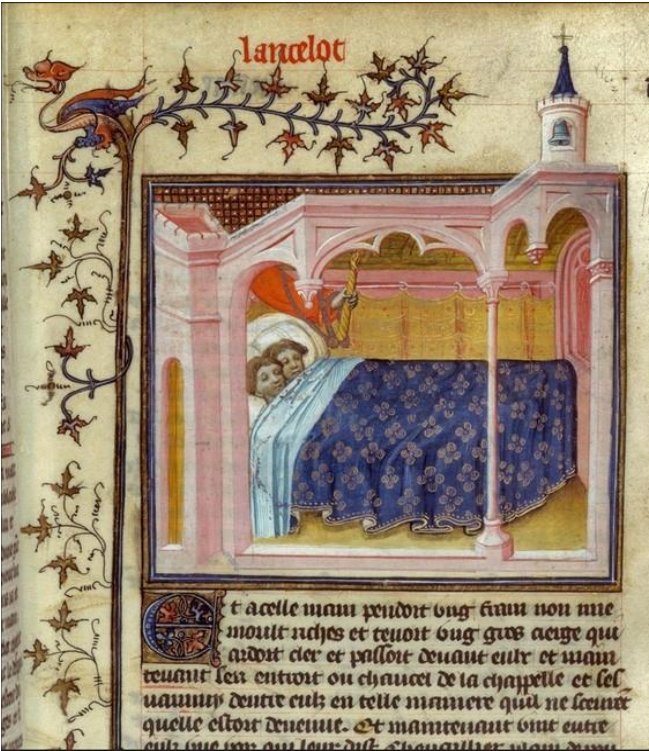 lancelot
Et a celle main pendoit ung frain non mie
moult riches et tenoit ung gros cierge qui
ardoit cler et passoit devant eulx et main
tenant sen entroit ou chancel de la chappelle et ses
vanuiss dentre eulx en telle maniere quil ne sceurent
quelle estoit devenue. Et maintenant vint entre
eulx une voix qui leur dist